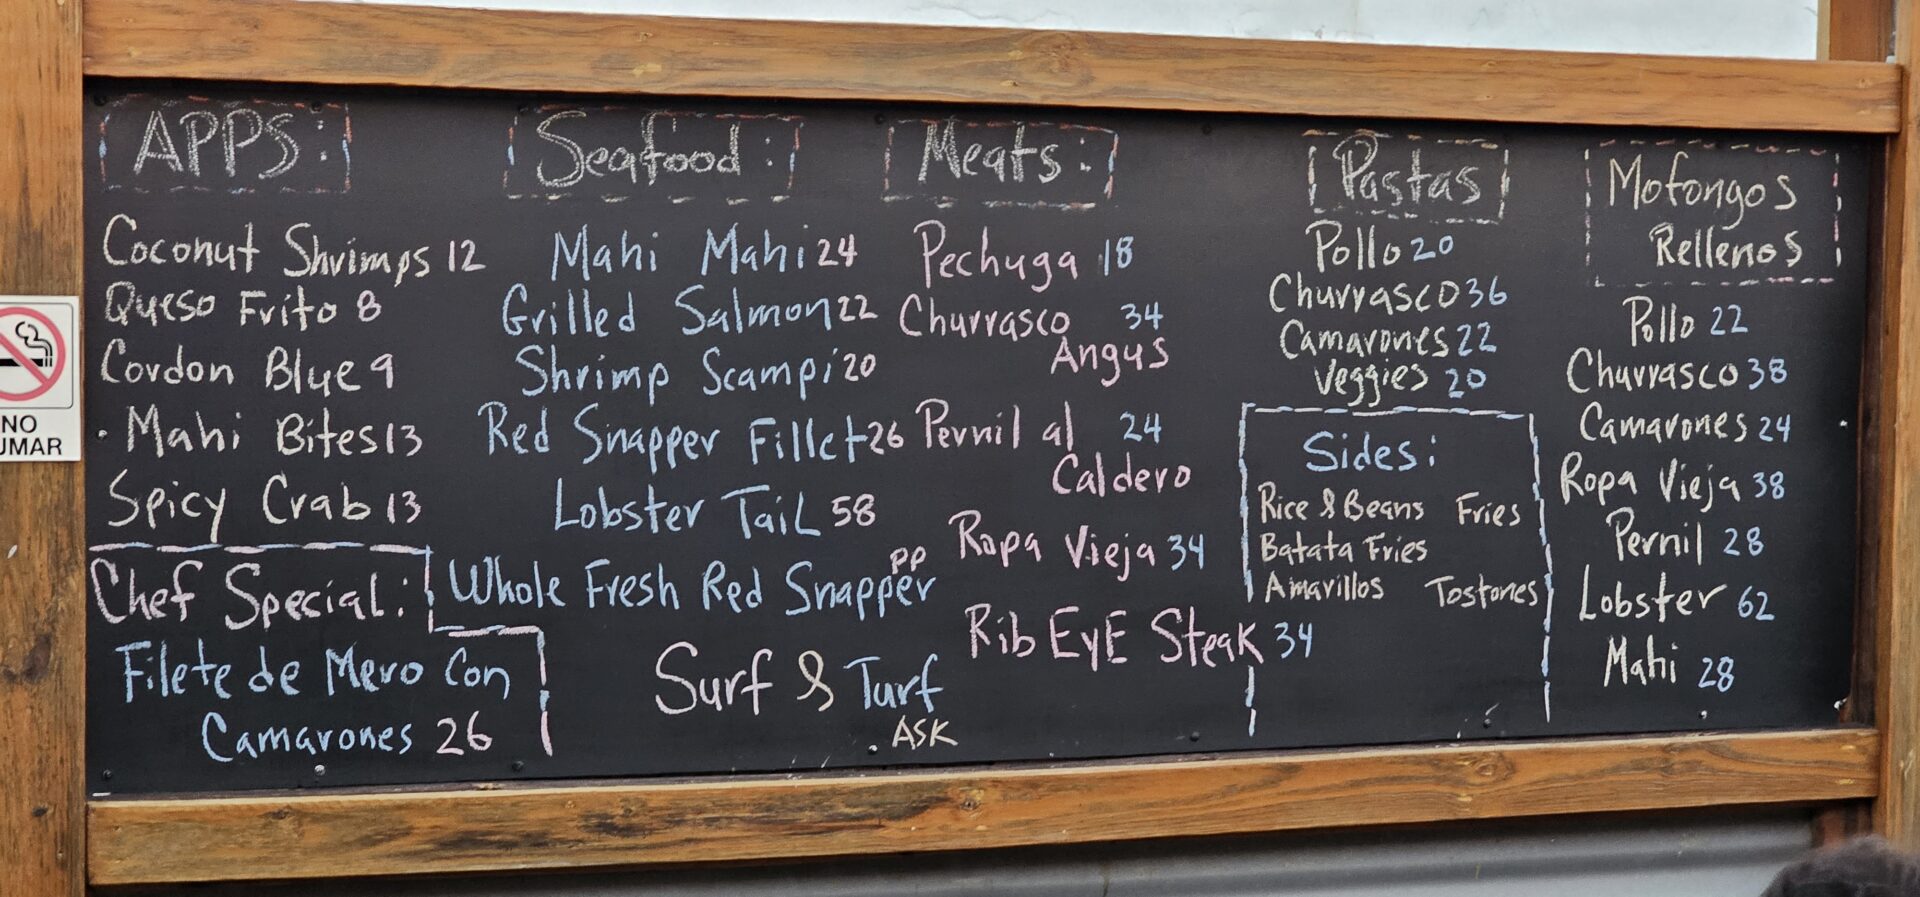 APPS:
Coconut Shrimps 12
Queso Frito 8
Cordon Blue 9
Mahi Bites 13
Spicy Crab 13
Chef Special:
Filete de Mero Con
Camarones 26
Seafood:
Mahi Mahi 24
Grilled Salmon 22
Shrimp Scampi 20
Red Snapper Fillet 26
Lobster Tail 58
Whole Fresh Red Snapper PP
Surf & Turf
ASK
Meats:
Pechuga 18
Churrasco 34
Angus
Pernil al 24
Caldero
Ropa Vieja 34
Rib EyE Steak 34
Pastas
Pollo 20
Churrasco 36
Camarones 22
Veggies 20
Sides:
Rice & Beans Fries
Batata Fries
Amarillos Tostones
Mofongos
Rellenos
Pollo 22
Churrasco 38
Camarones 24
Ropa Vieja 38
Pernil 28
Lobster 62
Mahi 28
NO
UMAR